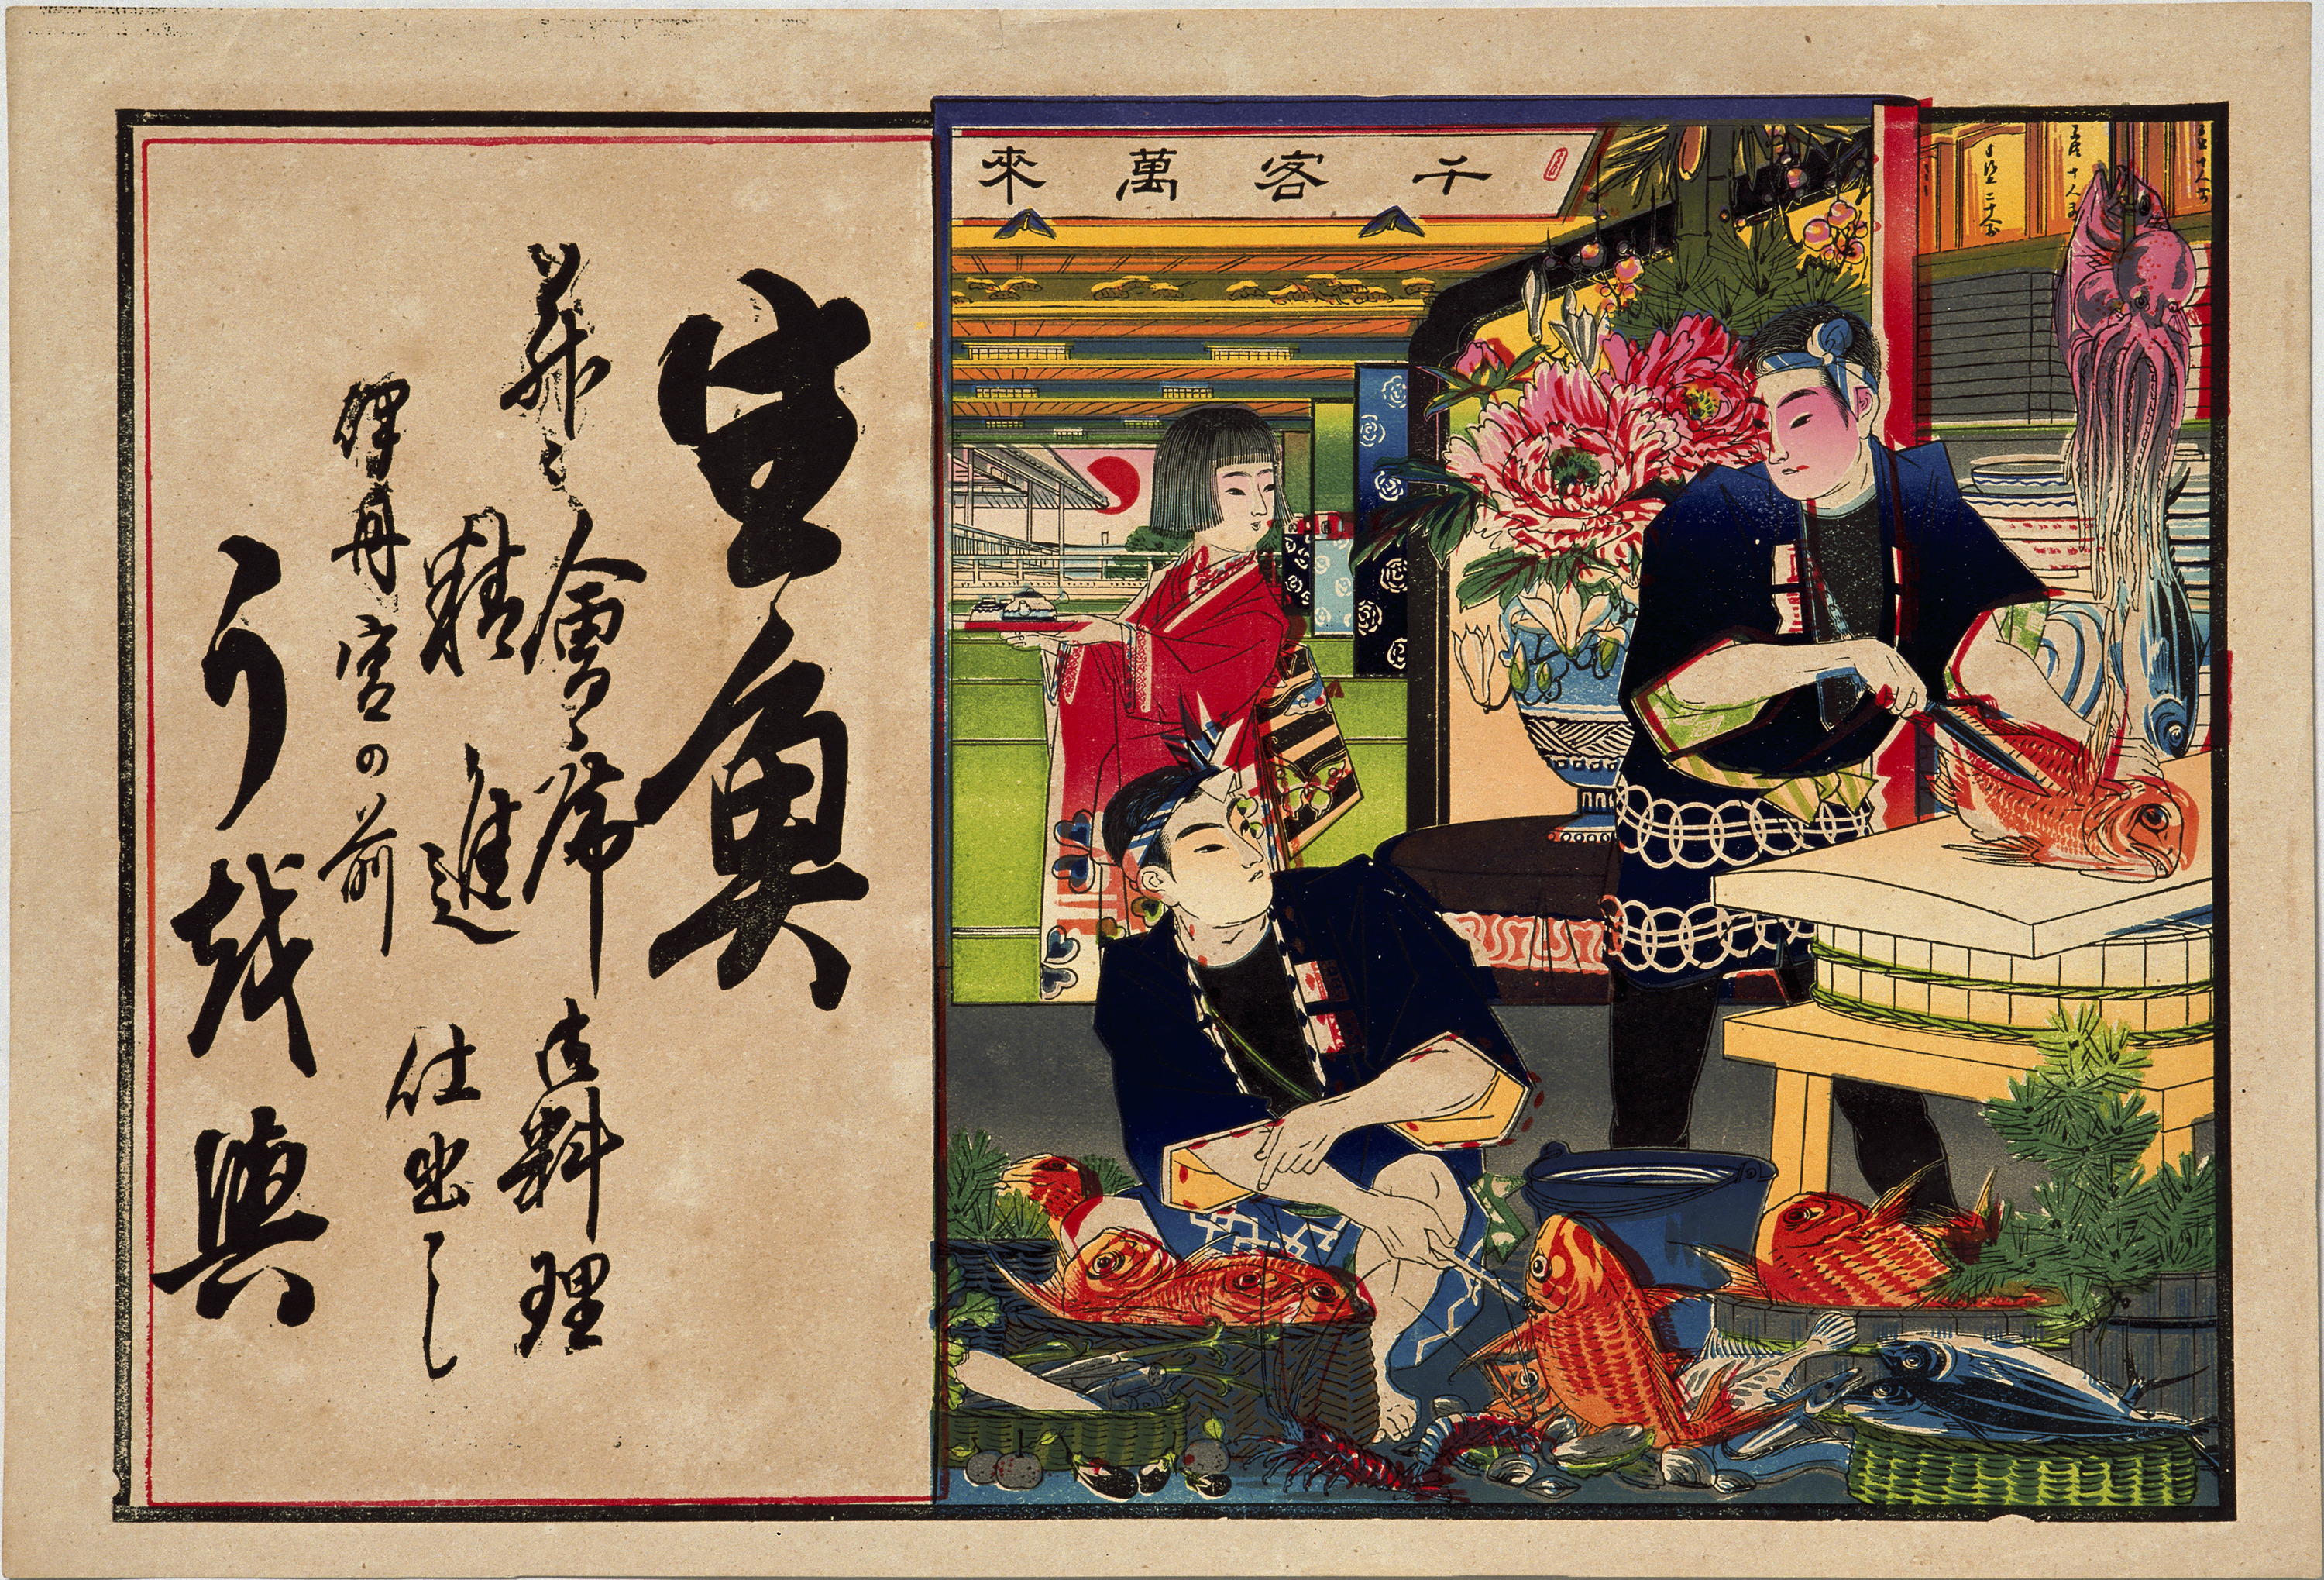 千客萬來
生魚
并ニ會席御料理
精進仕出し
伊丹宮の前
う越與